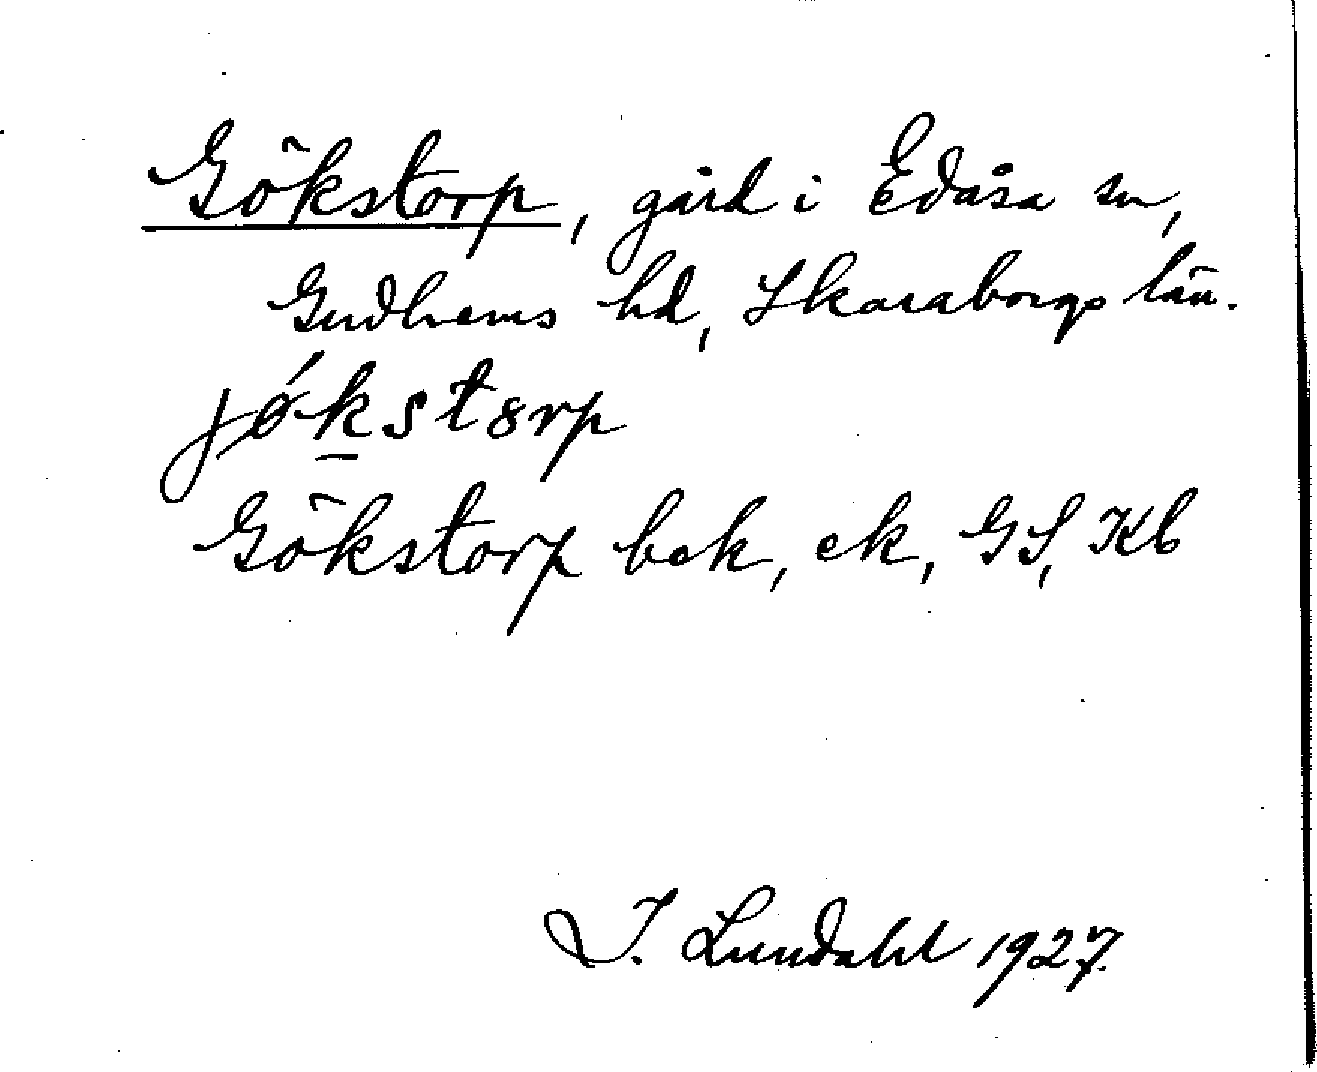 Gökstorp, gård i Edåsa sn,
Gudhems hd, Skaraborgs län.
jǿkstorp
Gökstorp bek, ek, GS, Kb
I. Lundahl 1927.